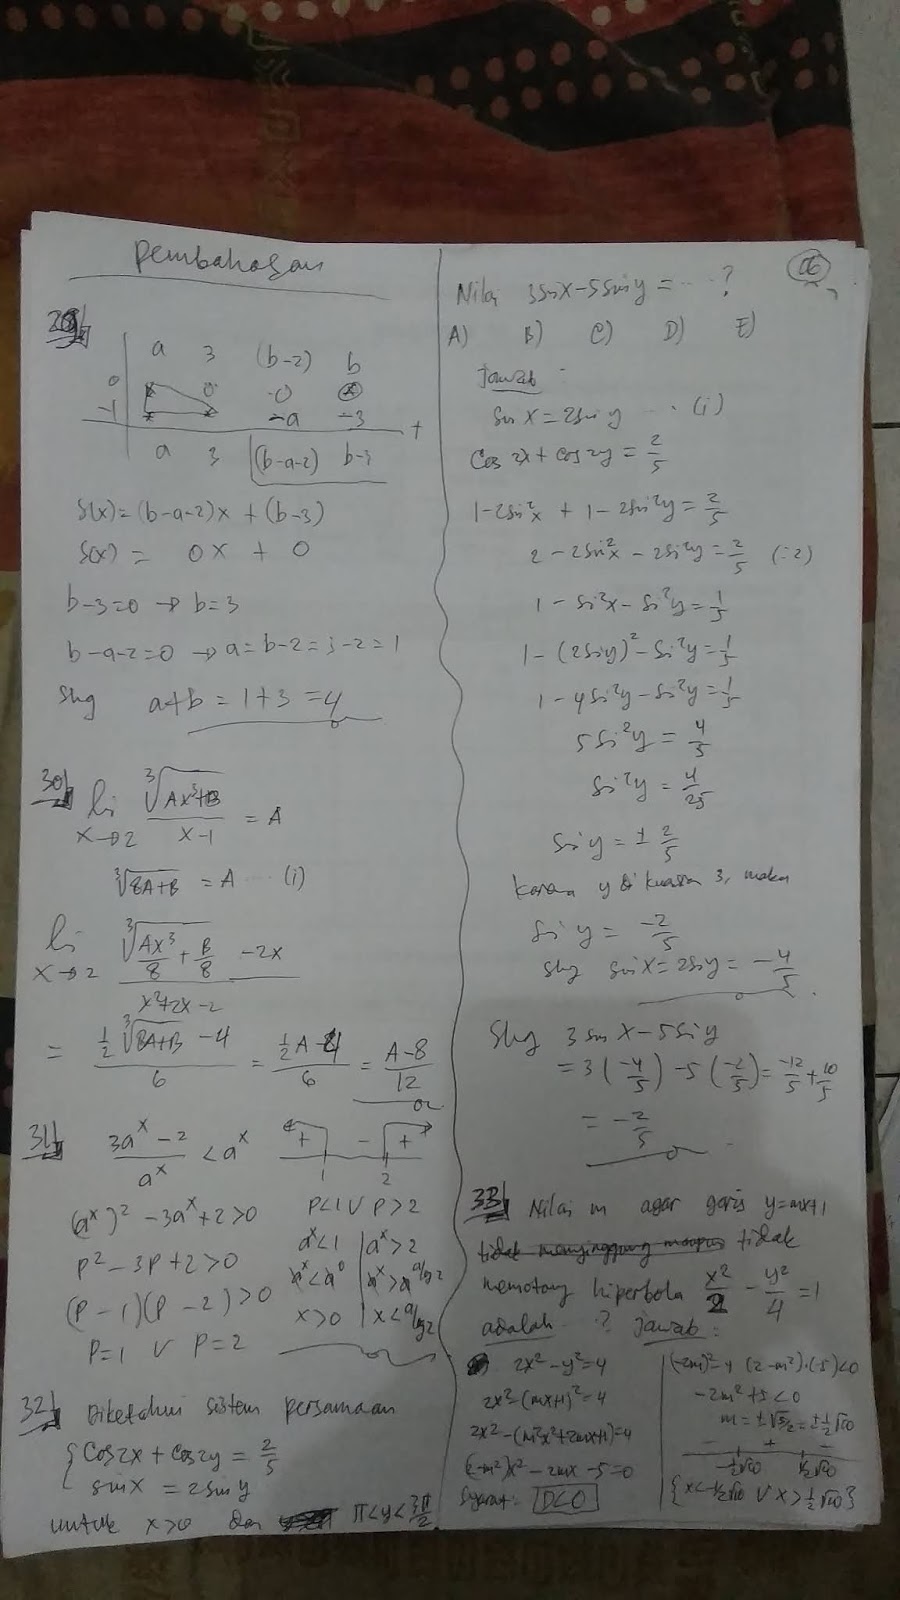 Pembahasan
29)
a 3 (b-2) b
0 0 0
-1 -a -3 +
a 3 (b-a-2) b-3
S(x) = (b-a-2)x + (b-3)
S(x) = 0x + 0
b-3=0 → b=3
b-a-2=0 → a=b-2=3-2=1
Shg a+b = 1+3 = 4
30) lim x→2 ∛(Ax³+B) / (x-1) = A
∛(8A+B) = A .... (i)
lim x→2 (∛(Ax³/8 + B/8) - 2x) / (x²+2x-2)
= (½ ∛(8A+B) - 4) / 6 = (½A - 4) / 6 = (A-8) / 12
31) (3a^x - 2) / a^x < a^x
+ - +
1 2
(a^x)² - 3a^x + 2 > 0 P<1 V P>2
P² - 3P + 2 > 0 a^x<1 | a^x>2
(P-1)(P-2) > 0 a^x<a^0 | a^x>a^(a log 2)
P=1 V P=2 x>0 | x<a log 2
32) Diketahui sistem persamaan
{ cos 2x + cos 2y = 2/5
sin x = 2 sin y
untuk x>0 dan π<y<3π/2
06
Nilai 3 sin x - 5 sin y = .... ?
A) B) C) D) E)
Jawab :
sin x = 2 sin y .... (i)
Cos 2x + cos 2y = 2/5
1-2sin²x + 1-2sin²y = 2/5
2 - 2sin²x - 2sin²y = 2/5 (:2)
1 - sin²x - sin²y = 1/5
1 - (2siy)² - sin²y = 1/5
1 - 4si²y - si²y = 1/5
5 si²y = 4/5
si²y = 4/25
si y = ± 2/5
karena y di kuadran 3, maka
si y = -2/5
shg sin x = 2siy = -4/5
Shg 3 sin x - 5 si y
= 3(-4/5) - 5(-2/5) = -12/5 + 10/5
= -2/5
33) Nilai m agar garis y=mx+1
tidak menyinggung maupun tidak
memotong hiperbola x²/2 - y²/4 = 1
adalah ..? Jawab :
2x² - y² = 4
2x² - (mx+1)² = 4
2x² - (m²x²+2mx+1) = 4
(2-m²)x² - 2mx - 5 = 0
Syarat : D<0
(-2m)² - 4 (2-m²)·(-5) < 0
-2m² + 5 < 0
m = ±√5/2 = ±½√10
- + -
-½√10 ½√10
{x<-½√10 V x>½√10}